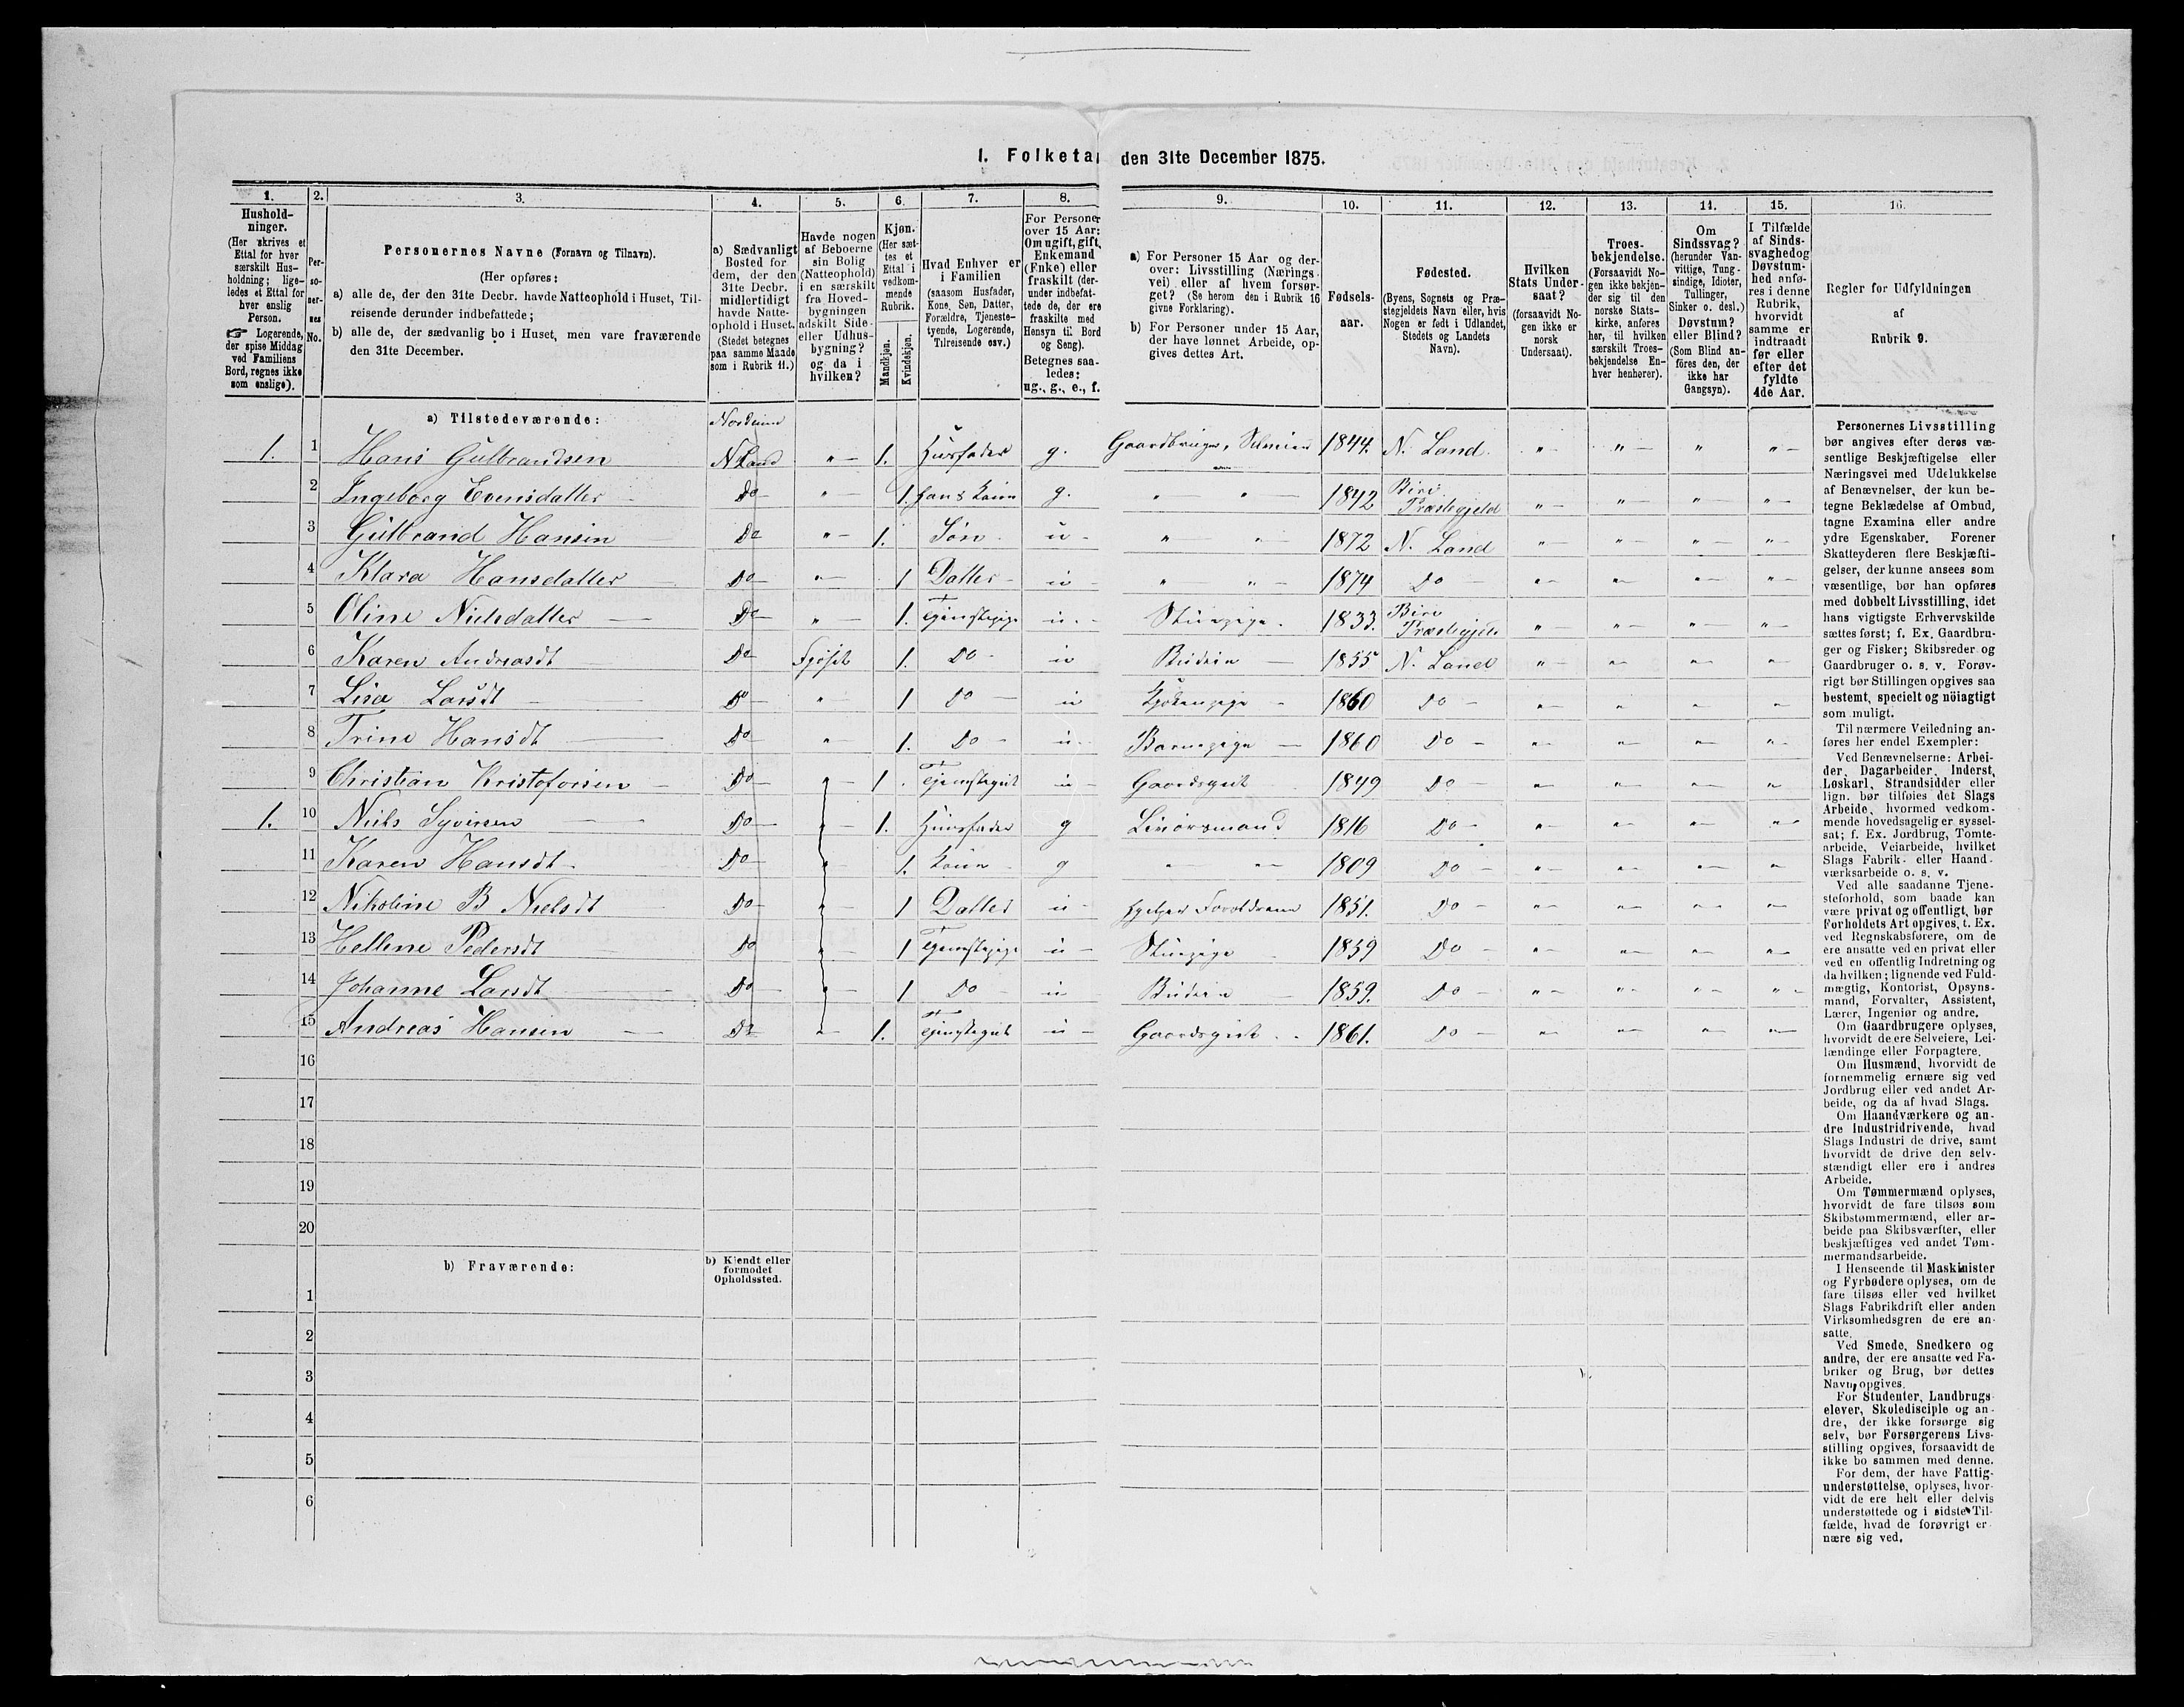 1. Folketæ den 31te December 1875.
1. 2. 3. 4. 5. 6. 7. 8. 9. 10. 11. 12. 13. 14. 15. 16.
Hushold-
ninger.
(Her skrives et
Ettal for hver
særskilt Hus-
holdning; lige-
ledes et Ettal for
hver enslig
Person.
☞ Logerende,
der spise Middag
ved Familiens
Bord, regnes ikke
som enslige).
Per-
so-
ner-
nes
No.
Personernes Navne (Fornavn og Tilnavn).
(Her opføres:
a) alle de, der den 31te Decbr. havde Natteophold i Huset, Til-
reisende derunder indbefattede;
b) alle de, der sædvanlig bo i Huset, men vare fraværende
den 31te December.
a) Sædvanligt
Bosted for
dem, der den
31te Decbr.
midlertidigt
havde Natte-
ophold i Huset.
(Stedet betegnes
paa samme Maade
som i Rubrik 11.)
Havde nogen
af Beboerne
sin Bolig
(Natteophold)
i en særskilt
fra Hoved-
bygningen
adskilt Side-
eller Udhus-
bygning?
og da i
hvilken?
Kjøn.
(Her sæt-
tes et
Ettal i
vedkom-
mende
Rubrik.
Mandkjøn.
Kvindekjøn.
Hvad Enhver er
i Familien
(saasom Husfader,
Kone, Søn, Datter,
Forældre, Tjeneste-
tyende, Logerende,
Tilreisende osv.)
For Personer
over 15 Aar:
Om ugift, gift,
Enkemand
(Enke) eller
fraskilt (der-
under indbefat-
tede de, der ere
fraskilte med
Hensyn til Bord
og Seng).
Betegnes saa-
ledes:
ug., g., e., f.
a) For Personer 15 Aar og der-
over: Livsstilling (Nærings-
vei) eller af hvem forsør-
get? (Se herom den i Rubrik 16
givne Forklaring).
b) For Personer under 15 Aar,
der have lønnet Arbeide, op-
gives dettes Art.
Fødsels-
aar.
Fødested.
(Byens, Sognets og Præ-
stegjeldets Navn eller, hvis
Nogen er født i Udlandet,
Stedets og Landets
Navn).
Hvilken
Stats Under-
saat?
(forsaavidt No-
gen ikke er
norsk
Undersaat).
Troes-
bekjendelse.
(Forsaavidt No-
gen ikke bekjen-
der sig til den
norske Stats-
kirke, anføres
her, til hvilken
særskilt Troes-
bekjendelse En-
hver henhører).
Om
Sindssvag?
(herunder Van-
vittige, Tung-
sindige, Idioter,
Tullinger,
Sinker o. desl.)
Døvstum?
eller Blind?
(Som Blind an-
føres den, der
ikke har
Gangsyn).
I Tilfælde
af Sinds-
svaghed og
Døvstum-
hed anfø-
res i denne
Rubrik,
hvorvidt
samme er
indtraadt
før eller
efter det
fyldte
4de Aar.
Regler for Udfyldningen
af
Rubrik 9.
a) Tilstedeværende:
1. 1 Hans Gulbrandsen N Land " 1. Husfader g. Gaardbruger, Selveier 1844. N. Land. " " " "
2 Ingeborg Evensdatter Do " 1. hans Kone g. " " 1842 Biri Præstegjeld " " " "
3 Gulbrand Hansen Do " 1. Søn u " " 1872 N. Land " " " "
4 Klara Hansdatter Do " 1 Datter u " " 1874 Do " " " "
5 Oline Nielsdatter Do " 1. Tjenstepige u. Stuepige 1833. Biri Præstegjeld " " " "
6 Karen Andreasdt Do Fjøset 1. Do u Budeie 1855 N. Land " " " "
7 Lisa Larsdt Do " 1 Do u Kjøkenpige 1860 Do " " " "
8 Trine Hansdt Do " 1. Do u Barnepige 1860 Do " " " "
9 Christian Kristofersen Do " 1. Tjenstegut u Gaardsgut 1849 Do " " " "
1. 10 Niels Syversen Do " 1. Huusfader g Livørsmand 1816 Do " " " "
11 Karen Hansdt Do " 1. Kone g " " 1809 Do " " " "
12 Nikoline B Nielsdt Do " 1 Datter u hjelper Foreldrene 1851. Do " " " "
13 Hellene Pedersdt Do " 1 Tjenstepige u Stuepige 1859 Do " " " "
14 Johanne Larsdt Do " 1 Do u Budeie 1859. Do " " " "
15 Andreas Hansen Do " 1. Tjenstegut u Gaardsgut 1861. Do " " " "
16
17
18
19
20
b) Fraværende:
b) Kjendt eller
formodet
Opholdssted.
1
2
3
4
5
6
Personernes Livsstilling
bør angives efter deres væ-
sentlige Beskjæftigelse eller
Næringsvei med Udelukkelse
af Benævnelser, der kun be-
tegne Beklædelse af Ombud,
tagne Examina eller andre
ydre Egenskaber. Forener
Skatteyderen flere Beskjæfti-
gelser, der kunne ansees som
væsentlige, bør han opføres
med dobbelt Livsstilling, idet
hans vigtigste Erhvervskilde
sættes først; f. Ex. Gaardbru-
ger og Fisker; Skibsreder og
Gaardbruger o. s. v. Forøv-
rigt bør Stillingen opgives saa
bestemt, specielt og nöiagtigt
som muligt.
Til nærmere Veiledning an-
føres her endel Exempler:
Ved Benævnelserne: Arbei-
der, Dagarbeider, Inderst,
Løskarl, Strandsidder eller
lign. bør tilføies det Slags
Arbeide, hvormed vedkom-
mende hovedsagelig er syssel-
sat; f. Ex. Jordbrug, Tomte-
arbeide, Veiarbeide, hvilket
Slags Fabrik- eller Haand-
værksarbeide o. s. v.
Ved alle saadanne Tjene-
steforhold, som baade kan
være privat og offentligt, bør
Forholdets Art opgives, t. Ex.
ved Regnskabsførere, om de
ere ansatte ved en privat eller
ved en offentlig Indretning og
da hvilken; lignende ved Fuld-
mægtig, Kontorist, Opsyns-
mand, Forvalter, Assistent,
Lærer, Ingeniør og andre.
Om Gaardbrugere oplyses,
hvorvidt de ere Selveiere, Lei-
lændinge eller Forpagtere.
Om Husmænd, hvorvidt de
fornemmelig ernære sig ved
Jordbrug eller ved andet Ar-
beide, og da af hvad Slags.
Om Haandværkere og an-
dre Industridrivende, hvad
Slags Industri de drive, samt
hvorvidt de drive den selv-
stændigt eller ere i andres
Arbeide.
Om Tømmermænd oplyses,
hvorvidt de fare tilsøs som
Skibstømmermænd, eller ar-
beide paa Skibsværfter, eller
beskjæftiges ved andet Tøm-
mermandsarbeide.
I Henseende til Maskinister
og Fyrbødere oplyses, om de
fare tilsøs eller ved hvilket
Slags Fabrikdrift eller anden
Virksomhedsgren de ere an-
satte.
Ved Smede, Snedkere og
andre, der ere ansatte ved Fa-
briker og Brug, bør dettes
Navn opgives.
For Studenter, Landbrugs-
elever, Skoledisciple og an-
dre, der ikke forsørge sig
selv, bør Forsørgerens Livs-
stilling opgives, forsaavidt de
ikke bo sammen med denne.
For dem, der have Fattig-
understøttelse, oplyses, hvor-
vidt de ere helt eller delvis
understøttede og i sidste Til-
fælde, hvad de forøvrigt er-
nære sig ved.